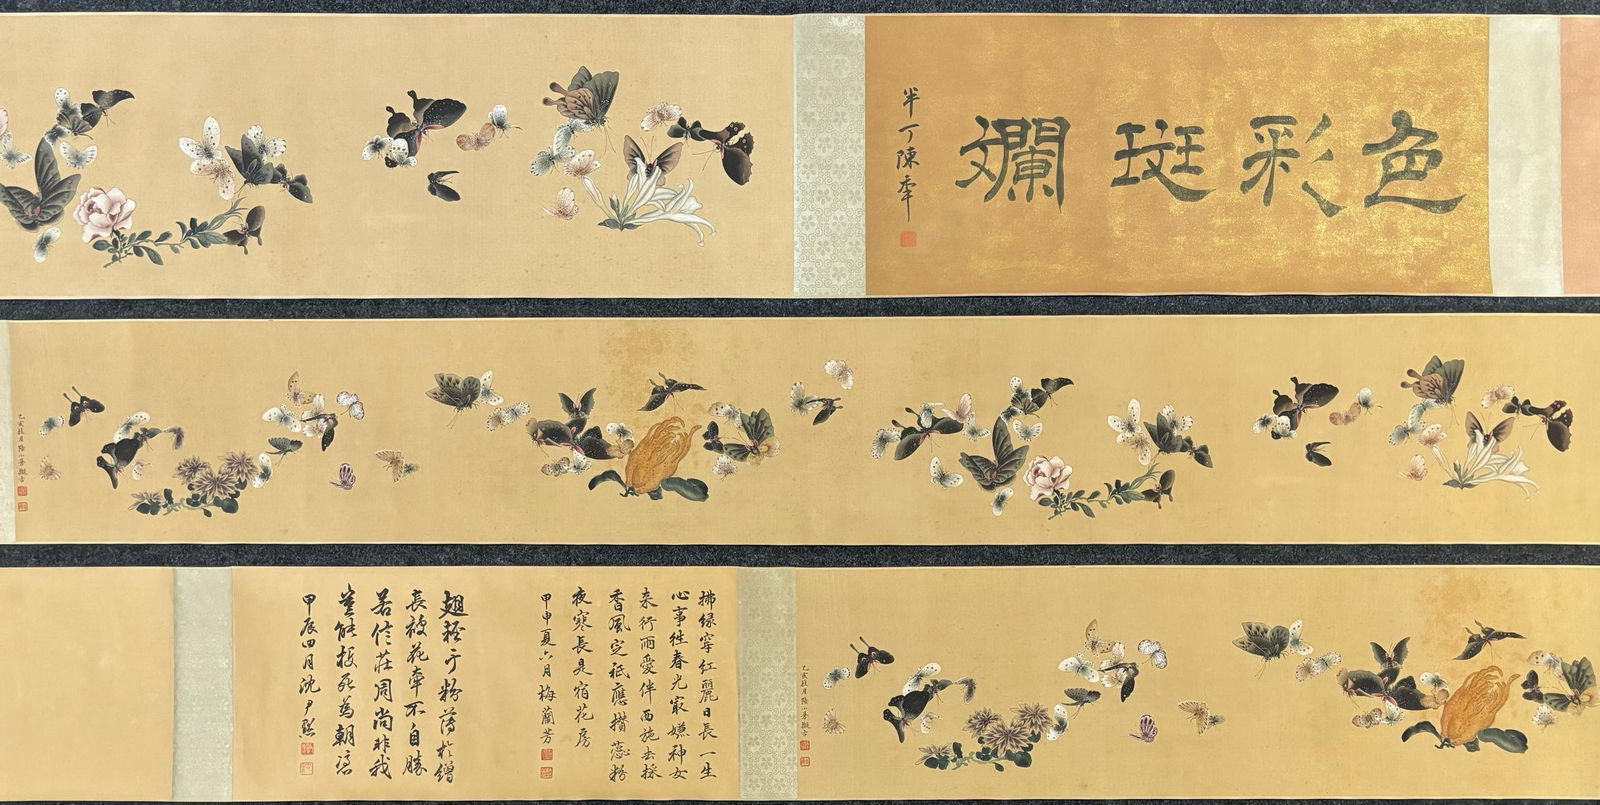 色彩斑斕
半丁陳年
乙亥桂月陸小曼擬古
拂綠穿紅麗日長一生
心事住春光最嫌神女
来行雨愛伴西施去採
香風定祇應攢蕊粉
夜寒長是宿花房
甲申夏六月梅蘭芳
翅輕于粉薄於繒
長被花牽不自勝
若信莊周尚非我
豈能投死為韓憑
甲辰四月沈尹默
乙亥桂月陸小曼擬古